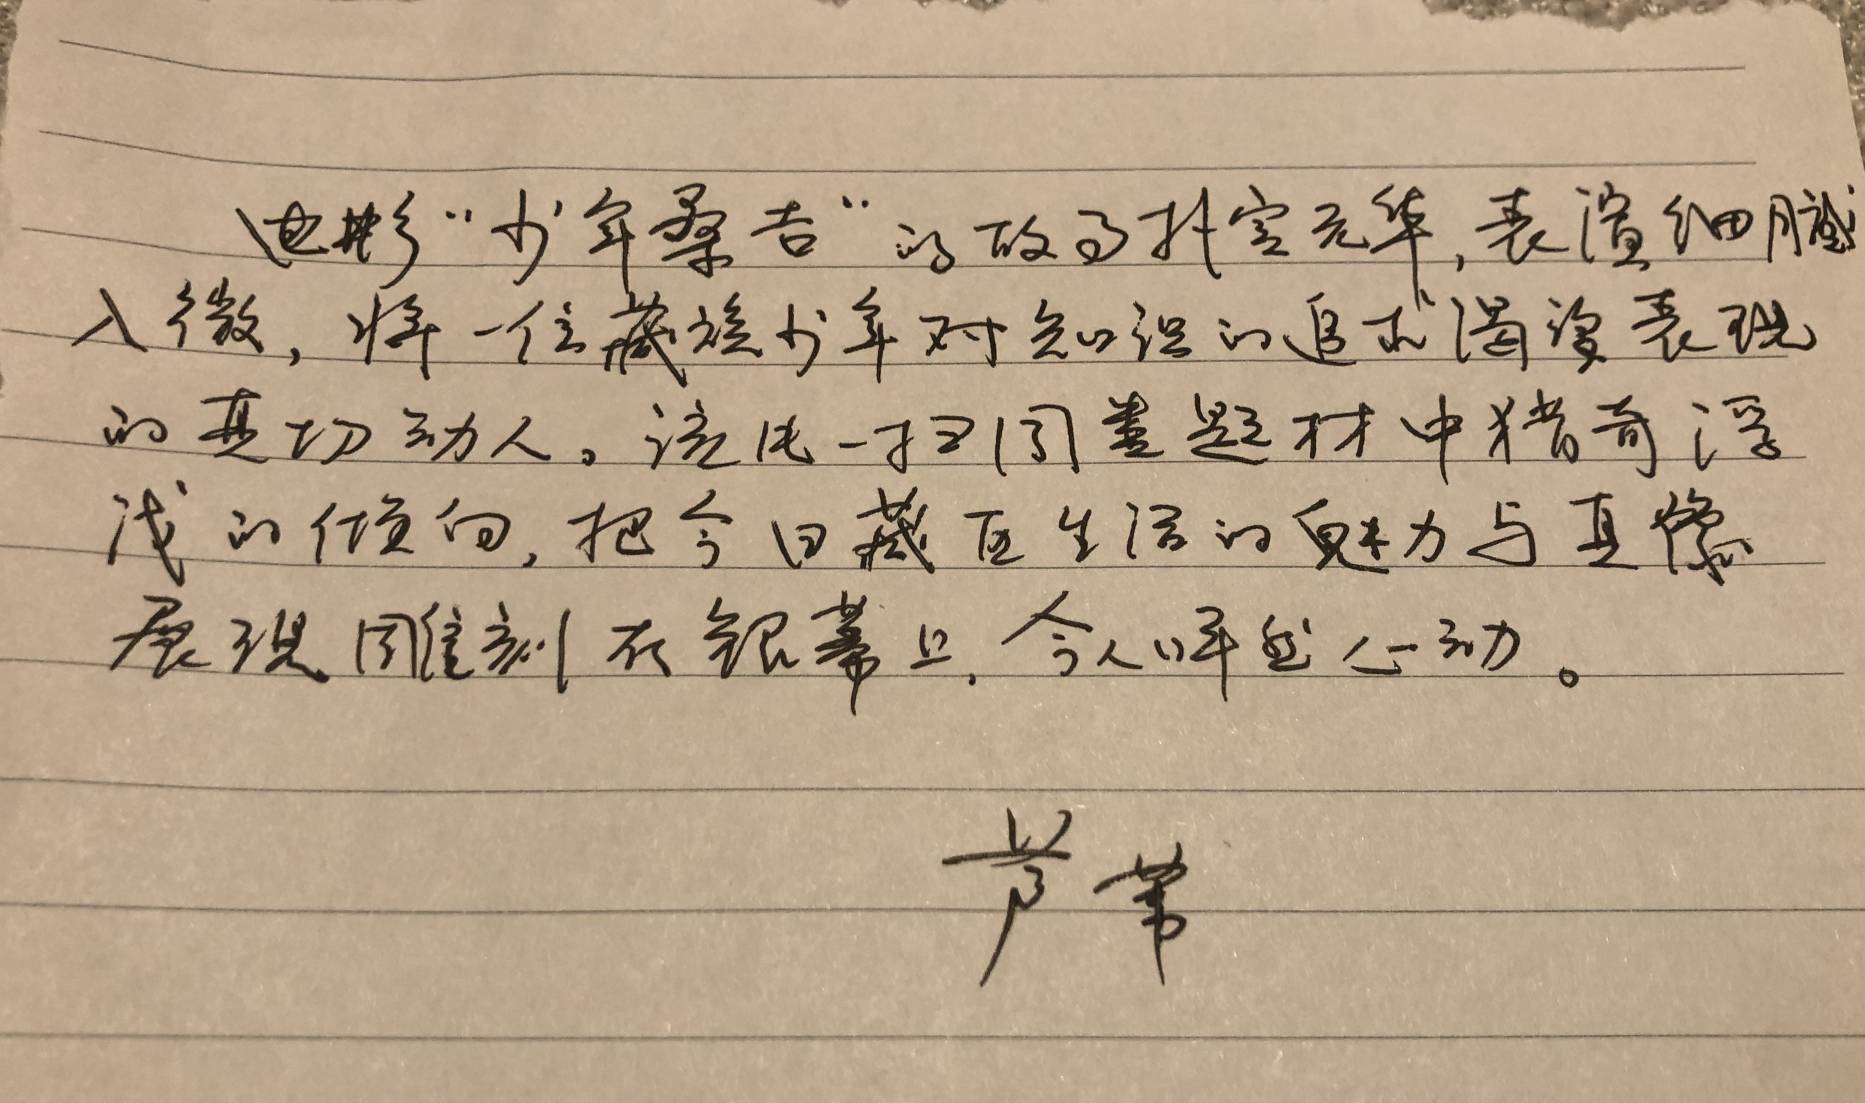 电影“少年桑吉”的故事朴实无华,表演细腻
入微,将一位藏族少年对知识的追求渴望表现
的真切动人。该片一扫同类题材中猎奇浮
浅的倾向,把今日藏区生活的魅力与真像
展现雕刻在银幕上,令人怦然心动。
芦苇